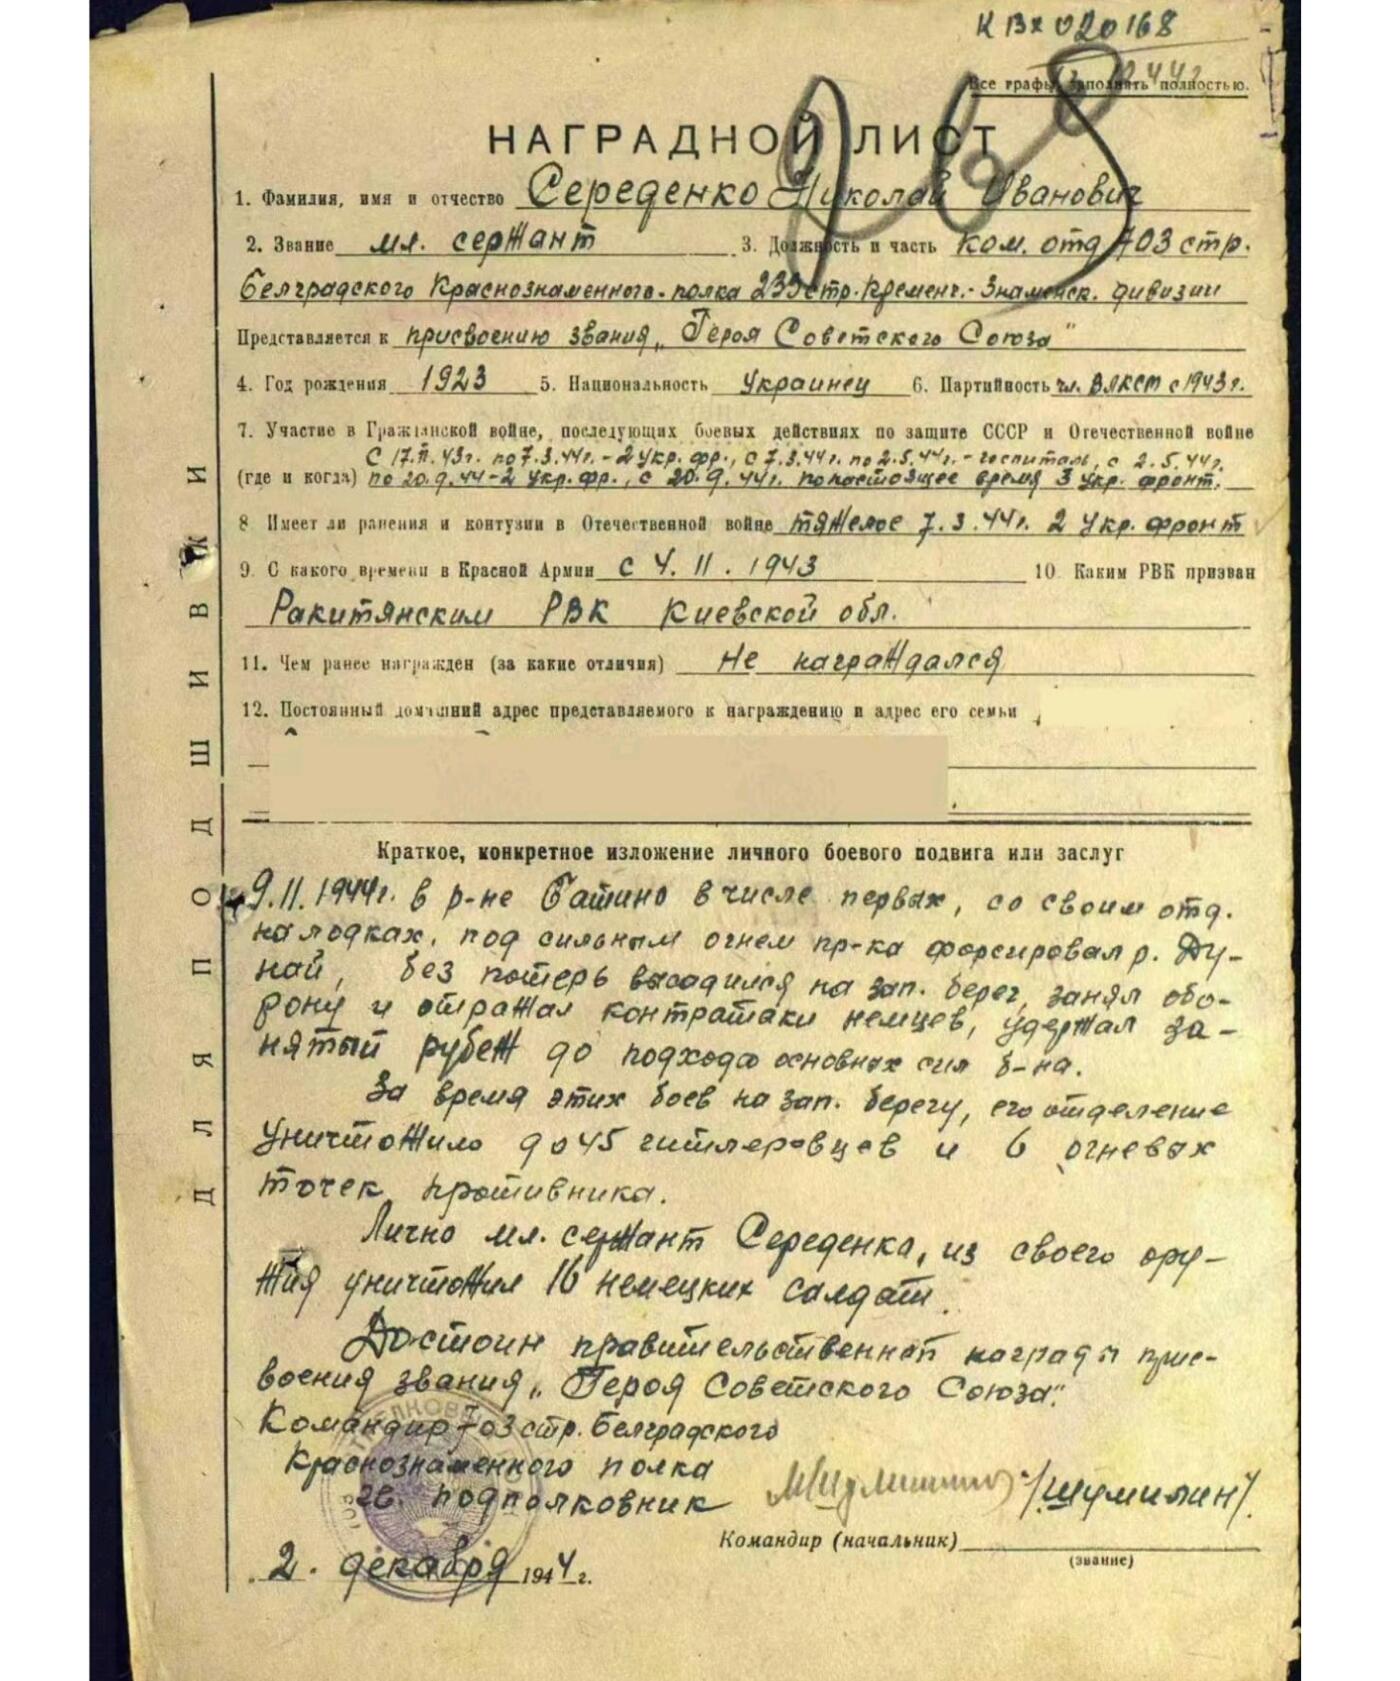 К вх 020168
Все графы заполнять полностью.
НАГРАДНОЙ ЛИСТ
1. Фамилия, имя и отчество Середенко Николай Иванович
2. Звание мл. сержант 3. Должность и часть ком. отд 703 стр.
Белградского Краснознаменного полка 233 стр. Кременч.-Знаменск. дивизии
Представляется к присвоению звания „Героя Советского Союза"
4. Год рождения 1923 5. Национальность Украинец 6. Партийность чл. ВЛКСМ с 1943 г.
7. Участие в Гражданской войне, последующих боевых действиях по защите СССР и Отечественной войне
С 17.11.43г. по 7.3.44г. - 2 Укр. фр., с 7.3.44г. по 2.5.44г. - госпиталь, с 2.5.44г.
(где и когда) по 20.9.44 - 2 Укр. фр., с 20.9.44г. по настоящее время 3 Укр. фронт.
8. Имеет ли ранения и контузии в Отечественной войне тяжелое 7.3.44г. 2 Укр. фронт
9. С какого времени в Красной Армии с 4.11.1943 10. Каким РВК призван
Ракитянским РВК Киевской обл.
11. Чем ранее награжден (за какие отличия) Не награждался
12. Постоянный домашний адрес представляемого к награждению и адрес его семьи
Краткое, конкретное изложение личного боевого подвига или заслуг
9.11.1944г. в р-не Батино в числе первых, со своим отд.
на лодках, под сильным огнем пр-ка форсировал р. Ду-
най, без потерь высадился на зап. берег, занял обо-
рону и отражал контратаки немцев, удержал за-
нятый рубеж до подхода основных сил б-на.
За время этих боев на зап. берегу, его отделение
уничтожило до 45 гитлеровцев и 6 огневых
точек противника.
Лично мл. сержант Середенка, из своего ору-
жия уничтожил 16 немецких салдат.
Достоин правительственной награды прис-
воения звания „Героя Советского Союза".
Командир 703 стр. Белградского
Краснознаменного полка
гв. подполковник /Шумилин/.
Командир (начальник)
(звание)
2. декабря 1944 г.
ДЛЯ ПОДШИВКИ